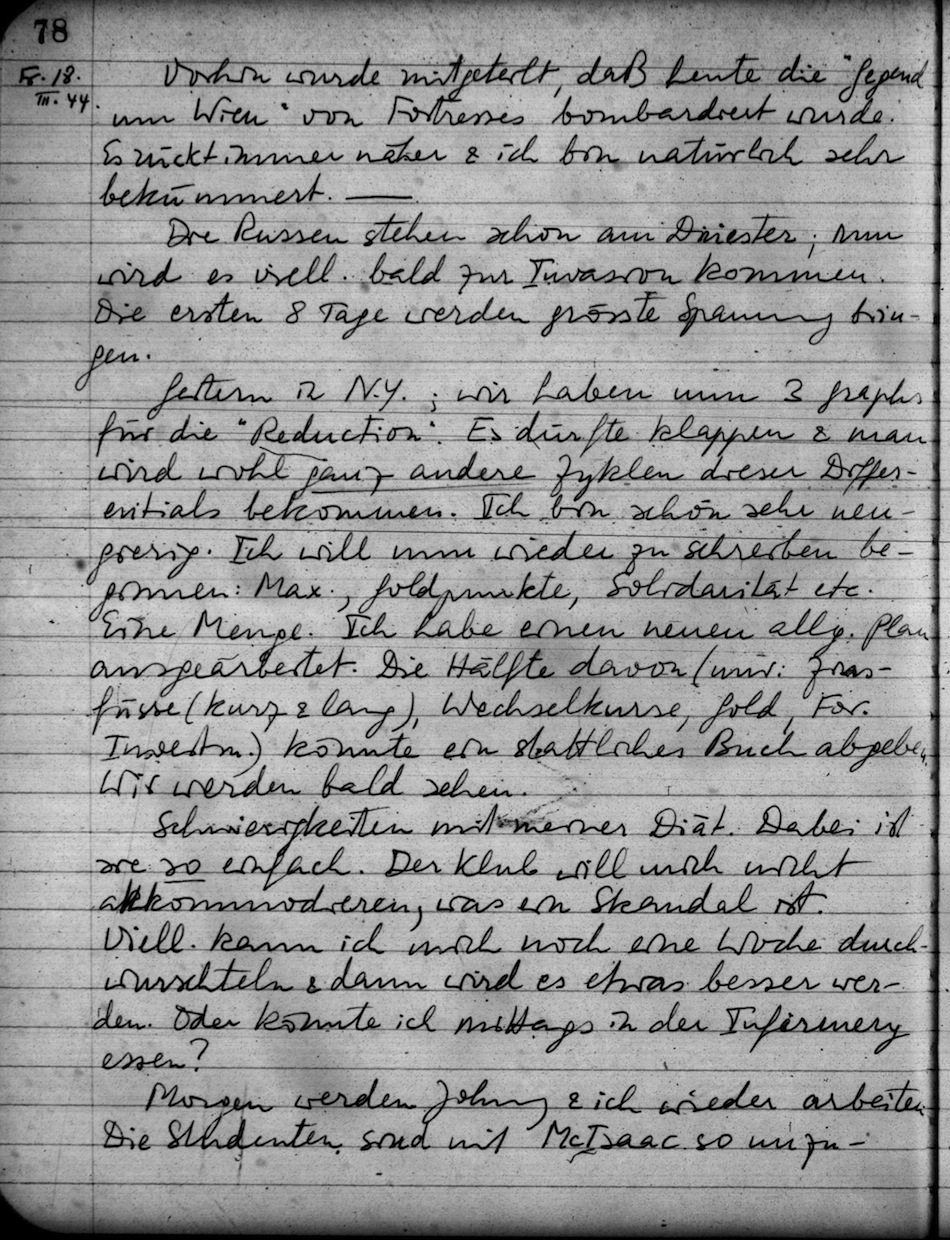 78
Fr. 18.
III. 44.
Vorhin wurde mitgeteilt, daß heute die "Gegend
um Wien" von Fortresses bombardiert wurde.
Es rückt immer näher & ich bin natürlich sehr
bekümmert. —
Die Russen stehen schon am Dniester; nun
wird es viell. bald zur Invasion kommen.
Die ersten 8 Tage werden grösste Spannung brin-
gen.
Gestern in N.Y.; wir haben nun 3 graphs
für die "Reduction". Es dürfte klappen & man
wird wohl ganz andere Zyklen dieser Differ-
entials bekommen. Ich bin schon sehr neu-
gierig. Ich will nun wieder zu schreiben be-
ginnen: Max., Goldpunkte, Solidarität etc.
Eine Menge. Ich habe einen neuen allg. Plan
ausgearbeitet. Die Hälfte davon (nur: Zins-
füsse (kurz & lang), Wechselkurse, Gold, For.
Investm.) könnte ein stattliches Buch abgeben.
Wir werden bald sehen.
Schwierigkeiten mit meiner Diät. Dabei ist
sie so einfach. Der Klub will mich nicht
akkommodieren, was ein Skandal ist.
Viell. kann ich mich noch eine Woche durch-
wurschteln & dann wird es etwas besser wer-
den. Oder könnte ich mittags in der Infirmery
essen?
Morgen werden Johnny & ich wieder arbeiten.
Die Studenten sind mit McIsaac so unzu-